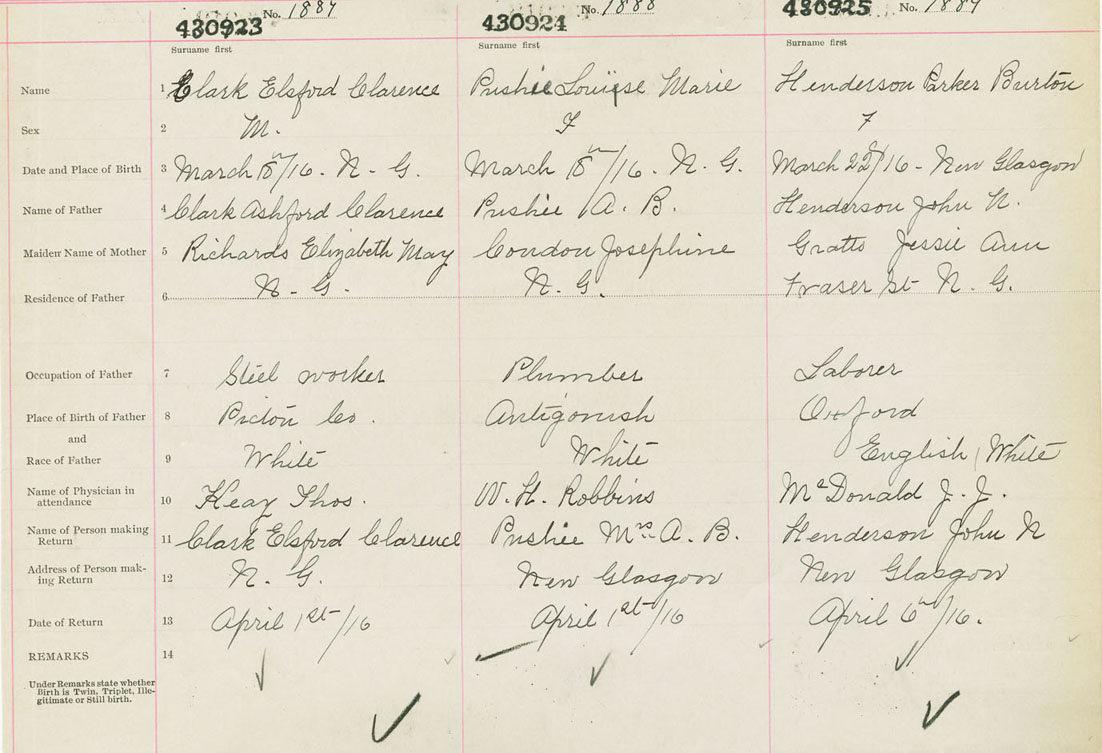 430923 No. 1887 430924 No. 1888 430925 No. 1889
Surname first Surname first Surname first
Name 1 Clark Elsford Clarence Pushie Louise Marie Henderson Parker Burton
Sex 2 M. F F
Date and Place of Birth 3 March 18th/16. N. G. March 18th/16. N. G. March 22nd/16 - New Glasgow
Name of Father 4 Clark Ashford Clarence Pushie A. B. Henderson John N.
Maiden Name of Mother 5 Richards Elizabeth May Condon Josephine Gratto Jessie Ann
Residence of Father 6 N. G. N. G. Fraser St - N. G.
Occupation of Father 7 Steel worker Plumber Laborer
Place of Birth of Father 8 Pictou Co. Antigonish Oxford
and
Race of Father 9 White White English White
Name of Physician in
attendance 10 Keay Thos. W. H. Robbins McDonald J. J.
Name of Person making
Return 11 Clark Elsford Clarence Pushie Mrs. A. B. Henderson John N
Address of Person mak-
ing Return 12 N. G. New Glasgow New Glasgow
Date of Return 13 April 1st/16 April 1st/16 April 6th/16.
REMARKS 14
Under Remarks state whether
Birth is Twin, Triplet, Ille-
gitimate or Still birth.